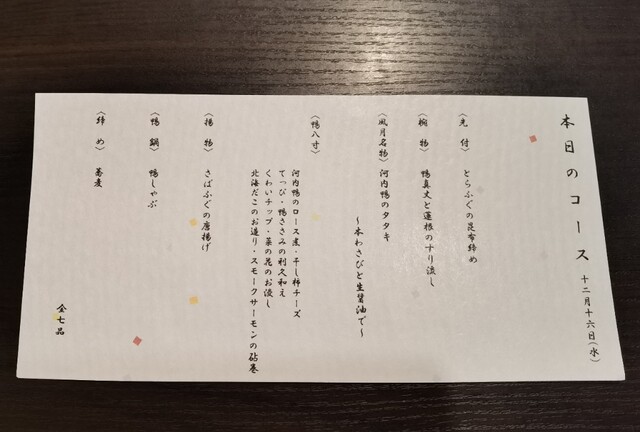 本日のコース 十二月十六日(水)
〈先付〉 とらふぐの昆布締め
〈椀物〉 鴨真丈と蓮根のすり流し
〈風月名物〉 河内鴨のタタキ
〜本わさびと生醤油で〜
〈鴨八寸〉
河内鴨のロース煮・干し柿チーズ
てっぴ・鴨ささみの利久和え
くわいチップ・菜の花のお浸し
北海だこのお造り・スモークサーモンの砧巻
〈揚物〉 さばふぐの唐揚げ
〈鴨鍋〉 鴨しゃぶ
〈締め〉 蕎麦
全七品